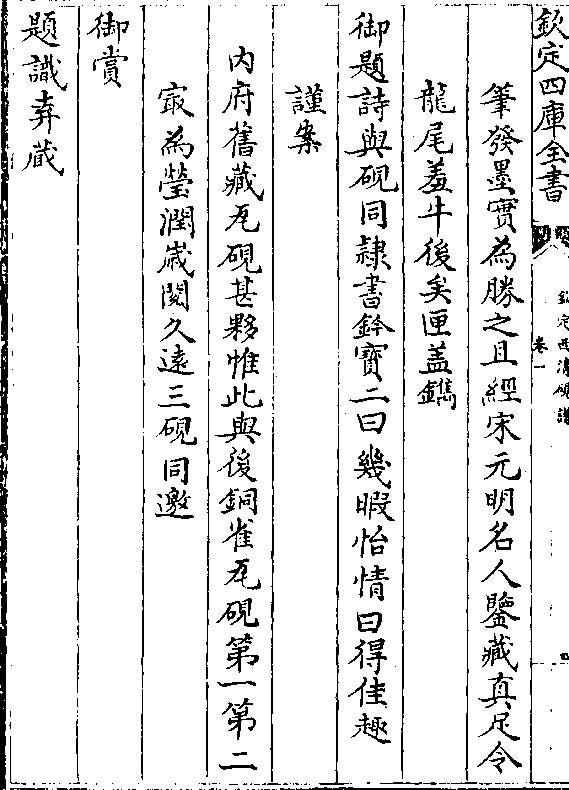 欽定四庫全書
欽定西清硯譜
卷一
四
筆發墨實為勝之且經宋元明名人鑒藏真足令
龍尾羞牛後矣匣蓋鐫
御題詩與硯同隸書鈐寶二曰幾暇怡情曰得佳趣
謹案
內府舊藏瓦硯甚夥惟此與後銅雀瓦硯第一第二
㝡為瑩潤嵗閱久遠三硯同邀
御賞
題識弆蔵